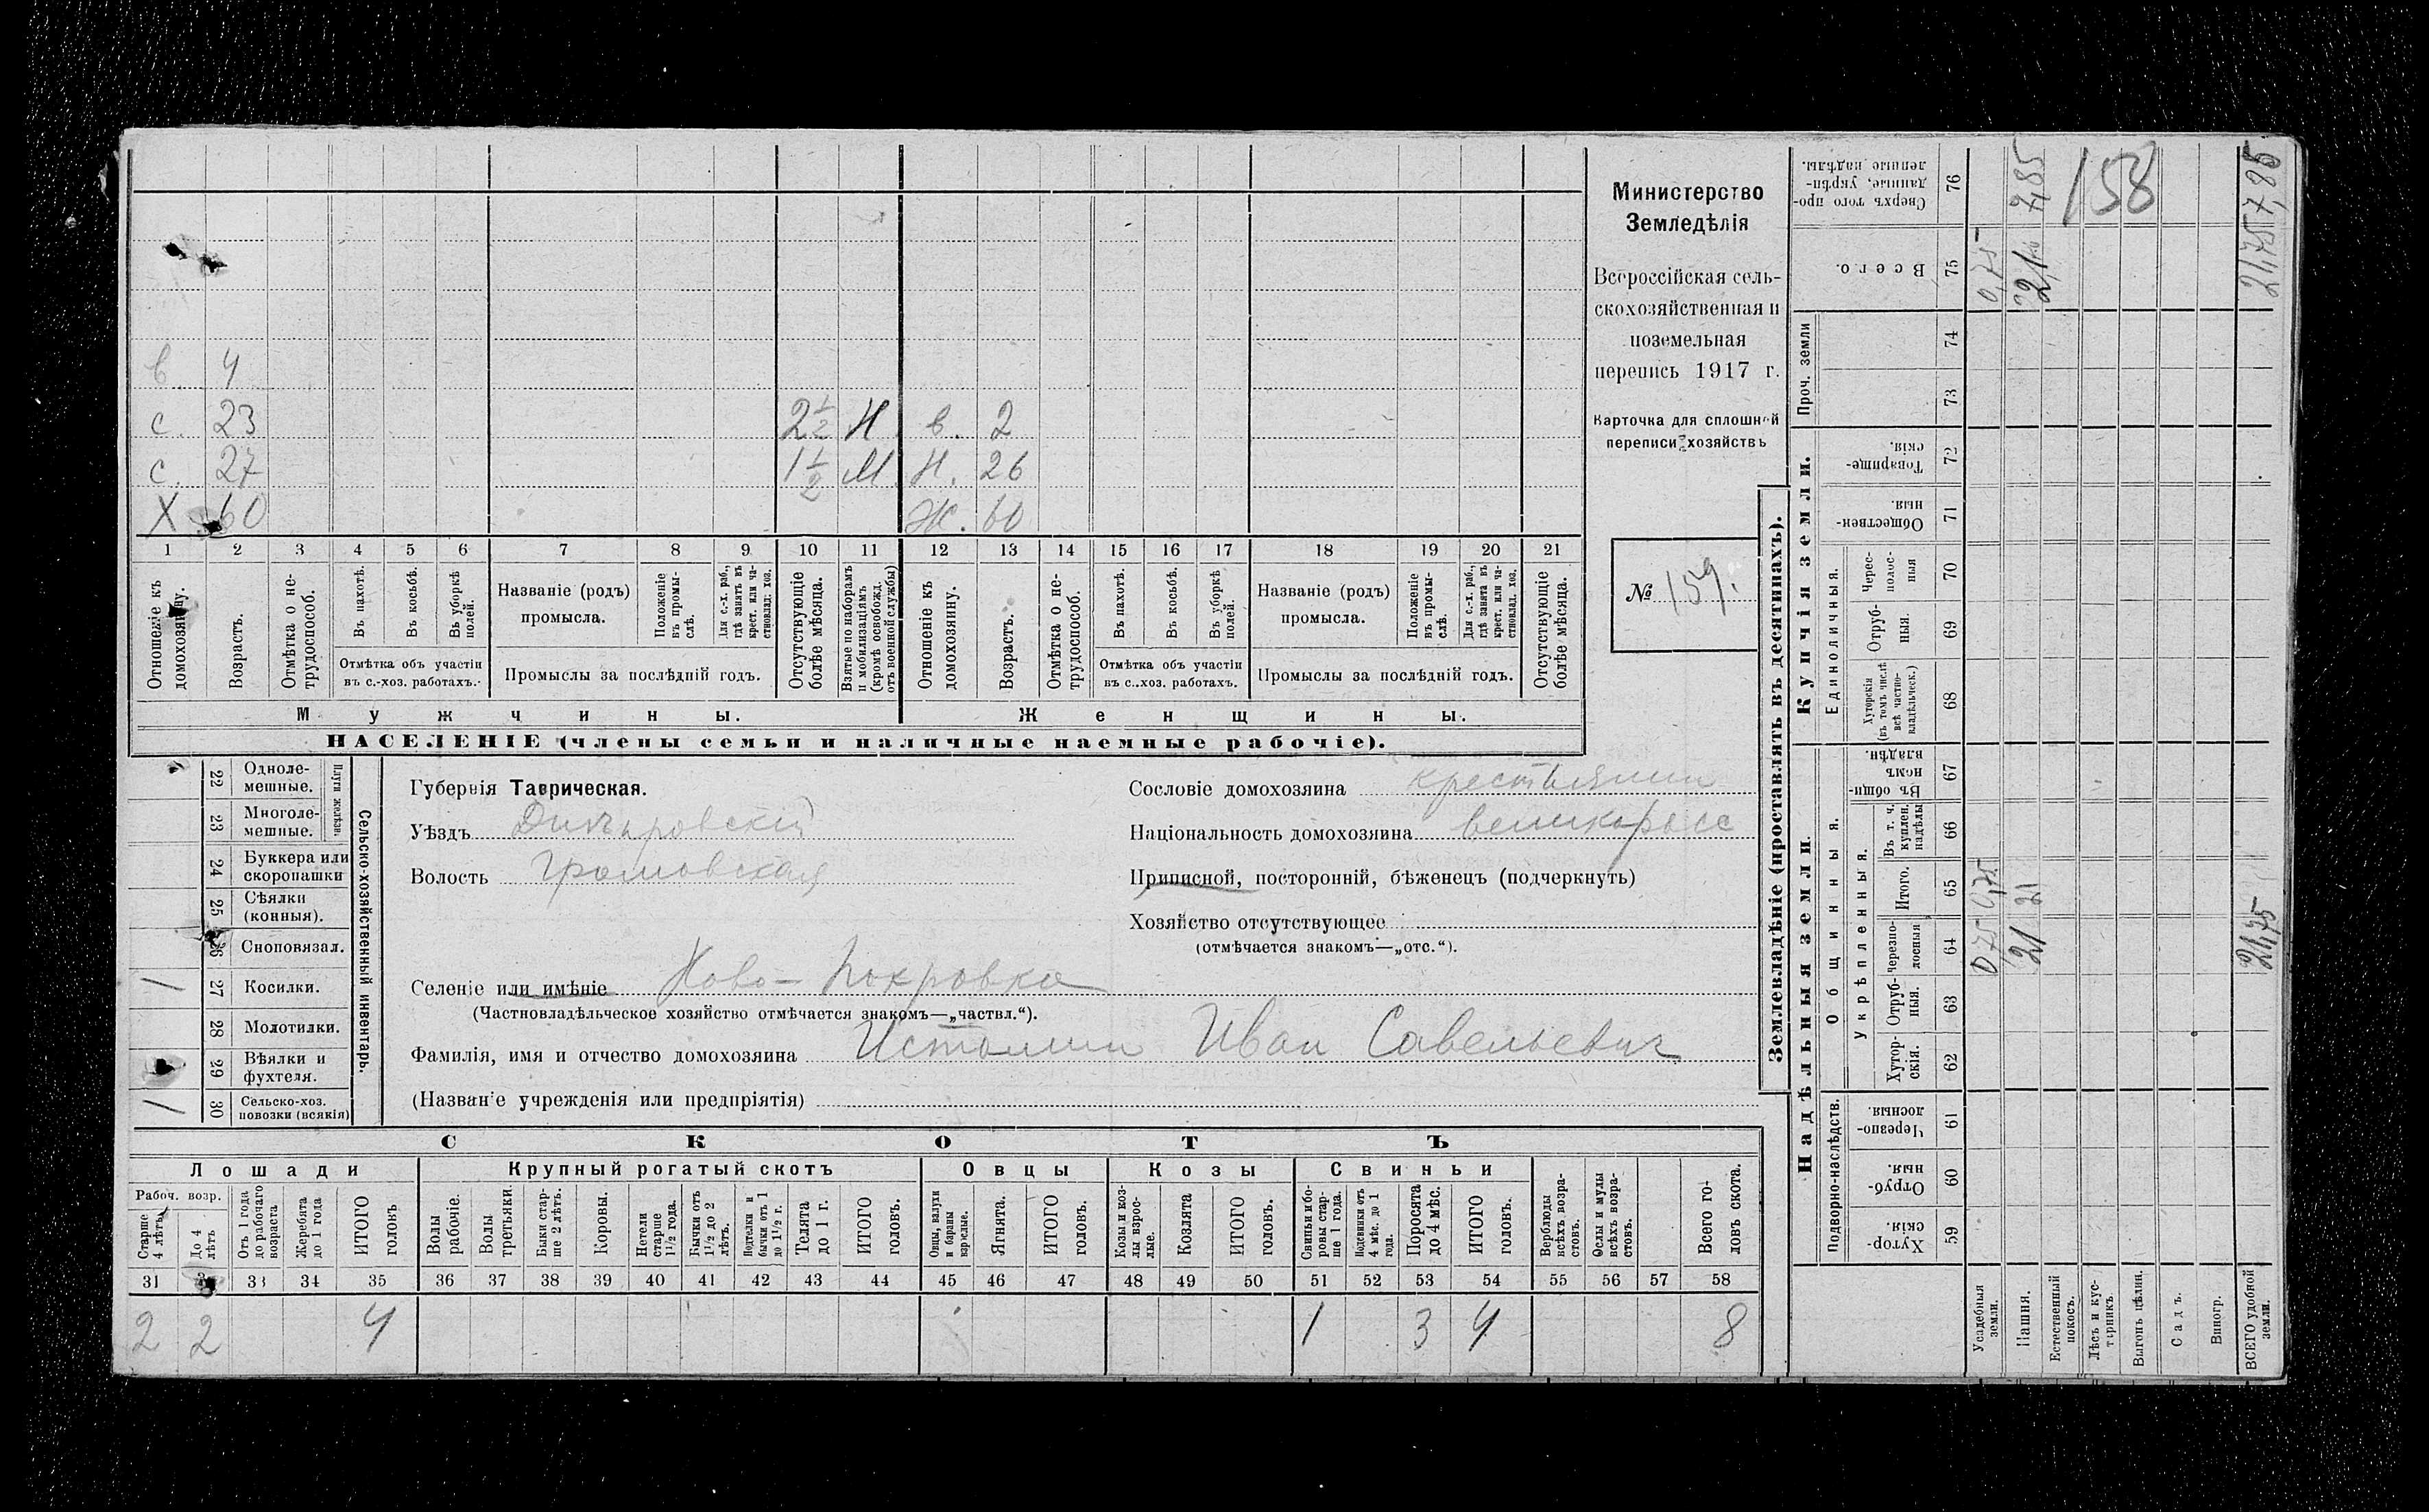 в. 4
с. 23 2½ Н. в. 2
с. 27 1½ М. Н. 26
Х 60 Ж. 60
1 2 3 4 5 6 7 8 9 10 11 12 13 14 15 16 17 18 19 20 21
Отношеніе къ домохозяину.
Возрастъ.
Отмѣтка о не-трудоспособ.
Въ пахотѣ.
Въ косьбѣ.
Въ уборкѣ полей.
Отмѣтка объ участіи въ с.-хоз. работахъ.
Названіе (родъ) промысла.
Положеніе въ промы-слѣ.
Для с.-х. раб., гдѣ занятъ въ крест. или ча-стновлад. хоз.
Промыслы за послѣдній годъ.
Отсутствующіе болѣе мѣсяца.
Взятые по наборамъ и мобилизаціямъ (кромѣ освобожд. отъ военной службы)
Отношеніе къ домохозяину.
Возрастъ.
Отмѣтка о не-трудоспособ.
Въ пахотѣ.
Въ косьбѣ.
Въ уборкѣ полей.
Отмѣтка объ участіи въ с.-хоз. работахъ.
Названіе (родъ) промысла.
Положеніе въ промы-слѣ.
Для с.-х. раб., гдѣ занята въ крест. или ча-стновлад. хоз.
Промыслы за послѣдній годъ.
Отсутствующіе болѣе мѣсяца.
Мужчины. Женщины.
НАСЕЛЕНІЕ (члены семьи и наличные наемные рабочіе).
Министерство
Земледѣлія
Всероссійская сель-
скохозяйственная и
поземельная
перепись 1917 г.
Карточка для сплошной
переписи хозяйствъ
№ 159.
Плуги желѣзн.
22 Одноле-мешные.
23 Многоле-мешные.
24 Буккера или скоропашки
25 Сѣялки (конныя).
26 Сноповязал.
1 27 Косилки.
28 Молотилки.
29 Вѣялки и фухтеля.
1 30 Сельско-хоз. повозки (всякія)
Сельско-хозяйственный инвентарь.
Губернія Таврическая.
Уѣздъ Днѣпровскій
Волость Громовская
Сословіе домохозяина крестьянин
Національность домохозяина великоросс
Приписной, посторонній, бѣженецъ (подчеркнуть)
Хозяйство отсутствующее
(отмѣчается знакомъ—„отс.“).
Селеніе или имѣніе Ново-Покровка
(Частновладѣльческое хозяйство отмѣчается знакомъ—„частвл.“).
Фамилія, имя и отчество домохозяина Истомин Иван Савельевич
(Названіе учрежденія или предпріятія)
СКОТЪ
Лошади Крупный рогатый скотъ Овцы Козы Свиньи
Рабоч. возр.
Старше 4 лѣтъ
До 4 лѣтъ
Отъ 1 года до рабочаго возраста
Жеребята до 1 года
ИТОГО головъ
Волы рабочіе.
Волы третьяки.
Быки стар-ше 2 лѣтъ.
Коровы.
Нетели старше 1½ года.
Бычки отъ 1½ до 2 лѣтъ.
Подтелки и бычки отъ 1 до 1½ г.
Телята до 1 г.
ИТОГО головъ.
Овцы, валухи и бараны взрослые.
Ягнята.
ИТОГО головъ.
Козы и коз-лы взрос-лые.
Козлята
ИТОГО головъ.
Свиньи и бо-ровы стар-ше 1 года.
Подсвинки отъ 4 мѣс. до 1 года.
Поросята до 4 мѣс.
ИТОГО головъ.
Верблюды всѣхъ возра-стовъ.
Ослы и мулы всѣхъ возра-стовъ.
Всего го-ловъ скота.
31 33 34 35 36 37 38 39 40 41 42 43 44 45 46 47 48 49 50 51 52 53 54 55 56 57 58
2 2 4 1 3 4 8
Землевладѣніе (проставлять въ десятинахъ).
Надѣльныя земли. Купчія земли. Проч. земли
Подворно-наслѣдств. Общинныя. Единоличныя.
Укрѣпленныя.
Хутор-скія. 59
Отруб-ныя. 60
Черезпо-лосныя. 61
Хутор-скія. 62
Отруб-ныя. 63
Черезпо-лосныя 64
Итого. 65
Въ т. ч. куплен. надѣлы 66
Въ общи-номъ владѣн. 67
Хуторскія (въ томъ числѣ всѣ частно-владѣльческ.) 68
Отруб-ныя. 69
Черес-полос-ныя 70
Обществен-ныя 71
Товарище-скія. 72
73
74
Всего. 75
Сверхъ того про-данные, укрѣп-ленные надѣлы. 76
Усадебныя земли. 0,75 0,75 0,75
Пашня. 21 21 21 7,85
Естественный покосъ.
Лѣсъ и кус-тарникъ. 158
Выгонъ цѣлин.
Садъ.
Виногр.
ВСЕГО удобной земли. 21,75 21,75 7,85